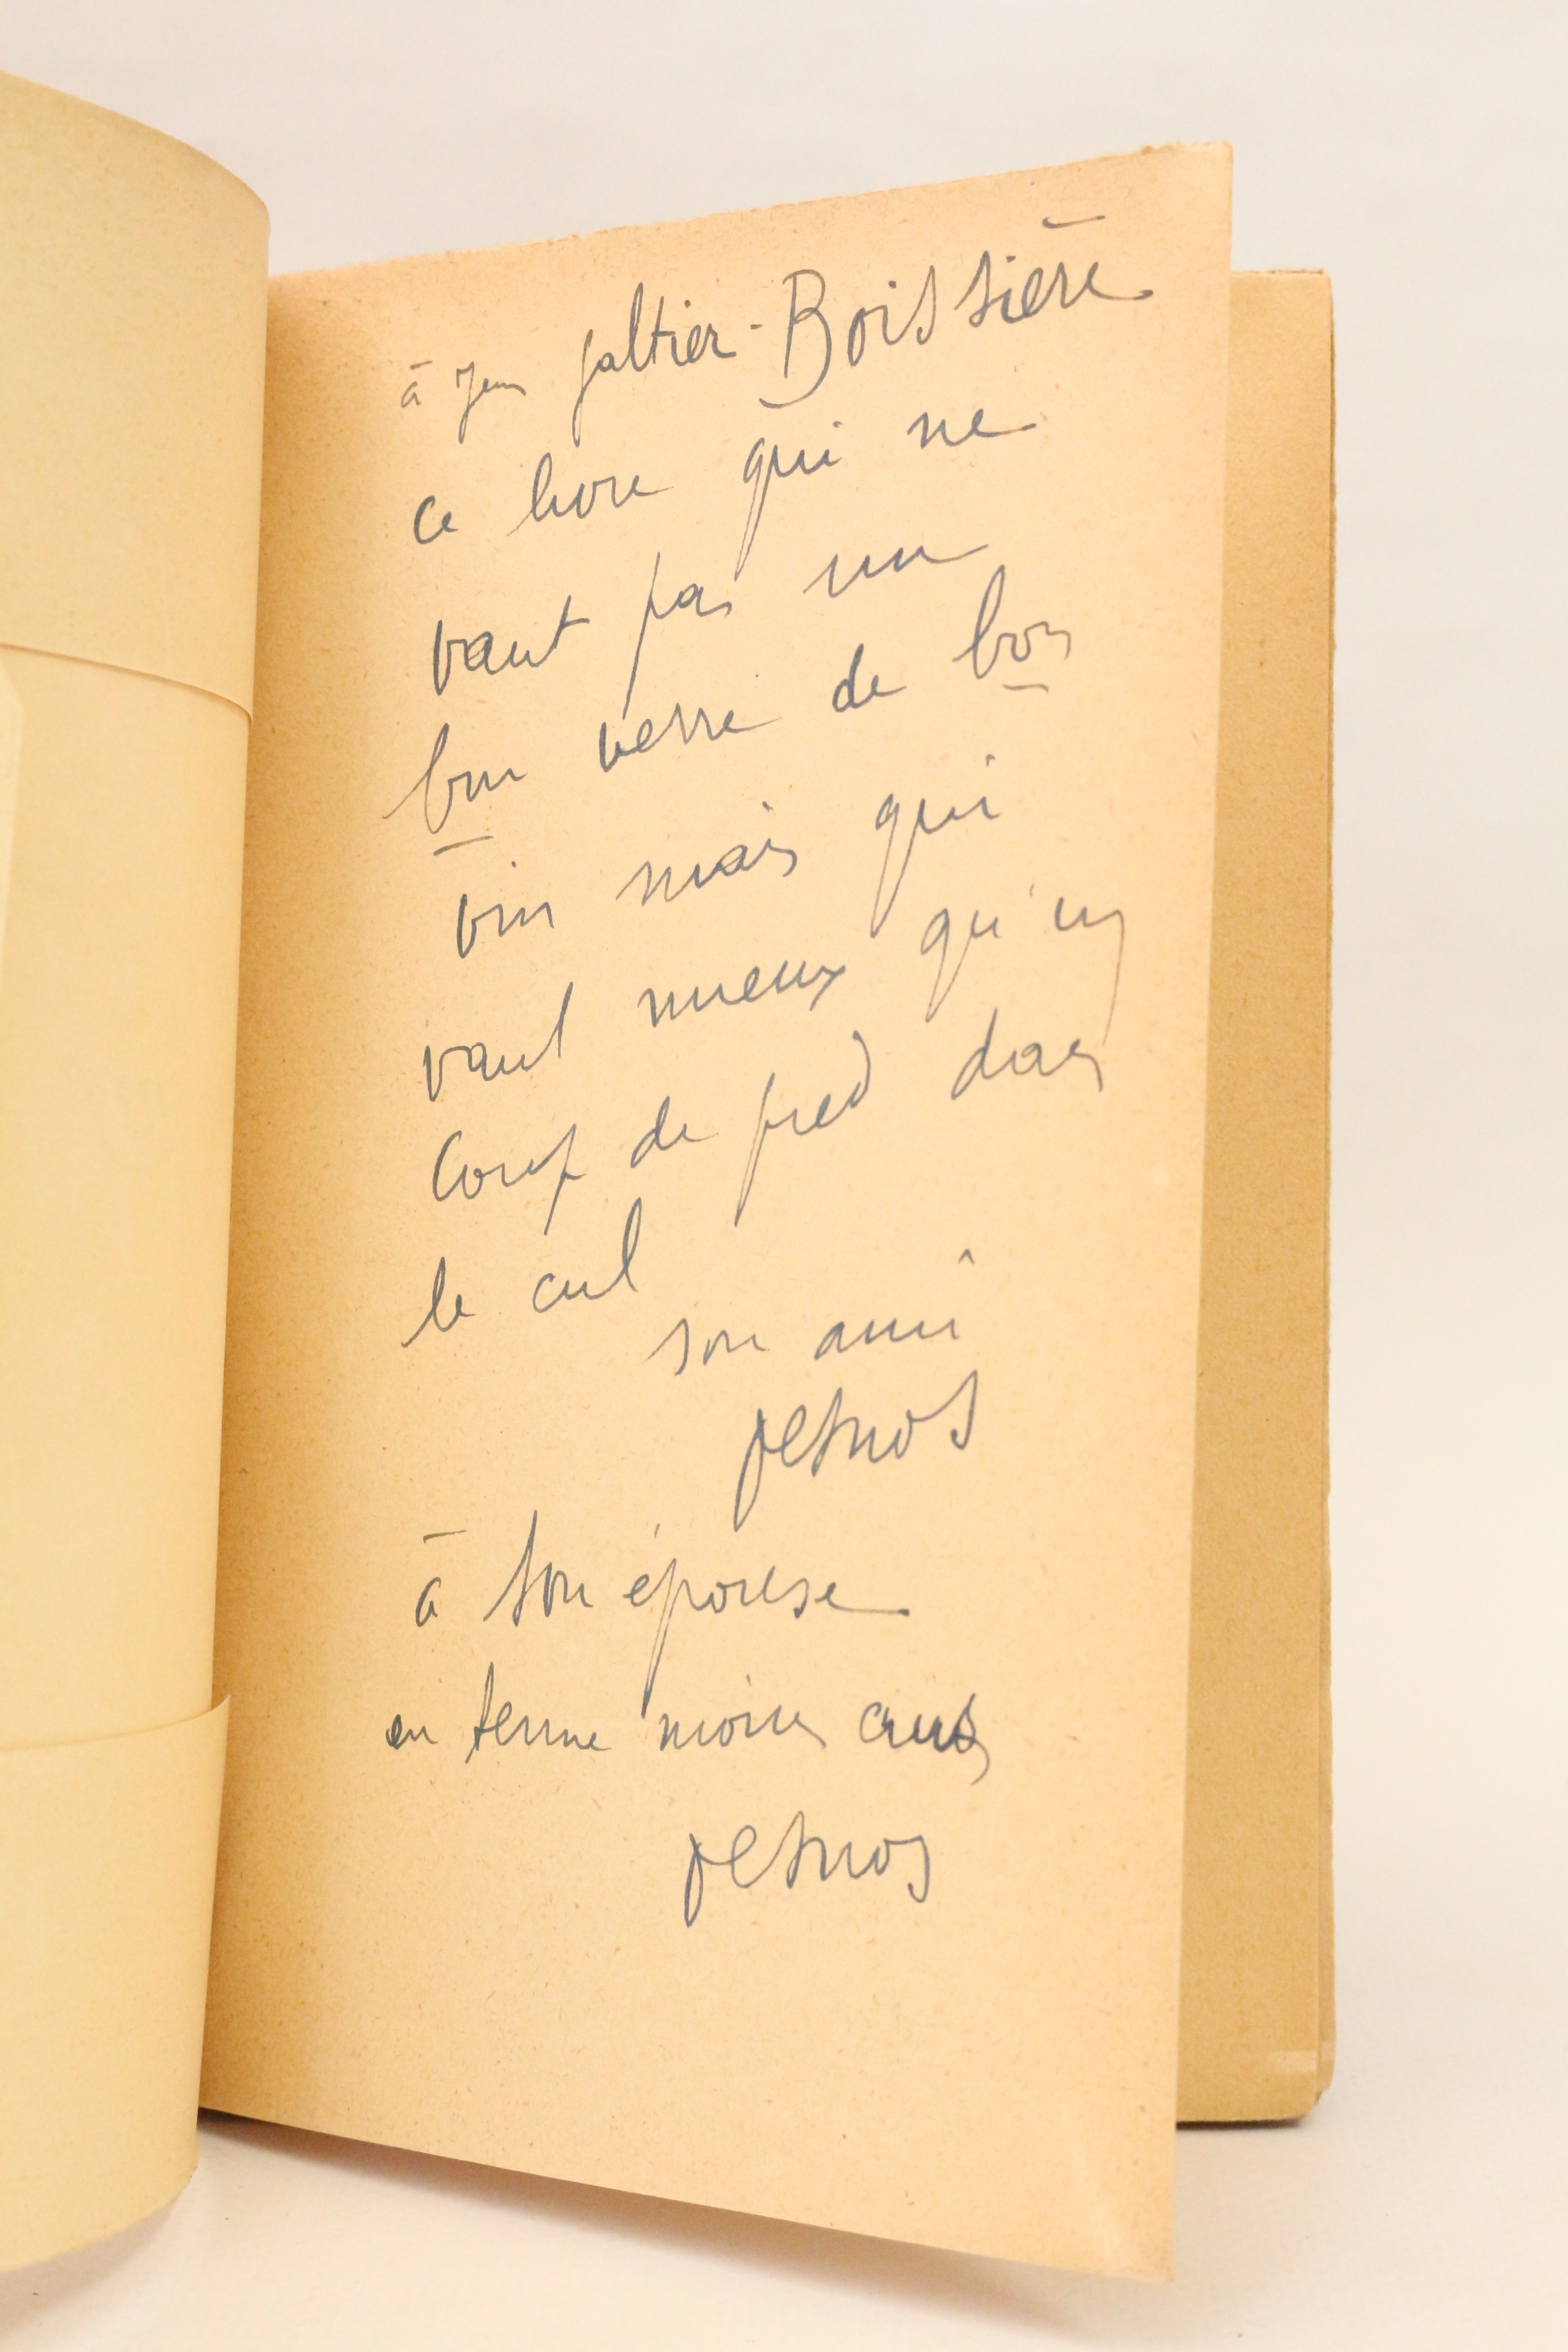 à Jean Galtier-Boissière
ce livre qui ne
vaut pas un
bon verre de bon
vin mais qui
vaut mieux qu'un
coup de pied dans
le cul
son ami
Desnos
à son épouse
en terme moins crus
Desnos